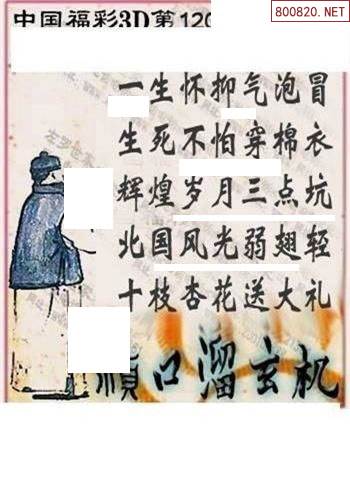 800820.NET
中国福彩3D第120
一生怀抑气泡冒
生死不怕穿棉衣
辉煌岁月三点坑
北国风光弱翅轻
十枝杏花送大礼
顺口溜玄机